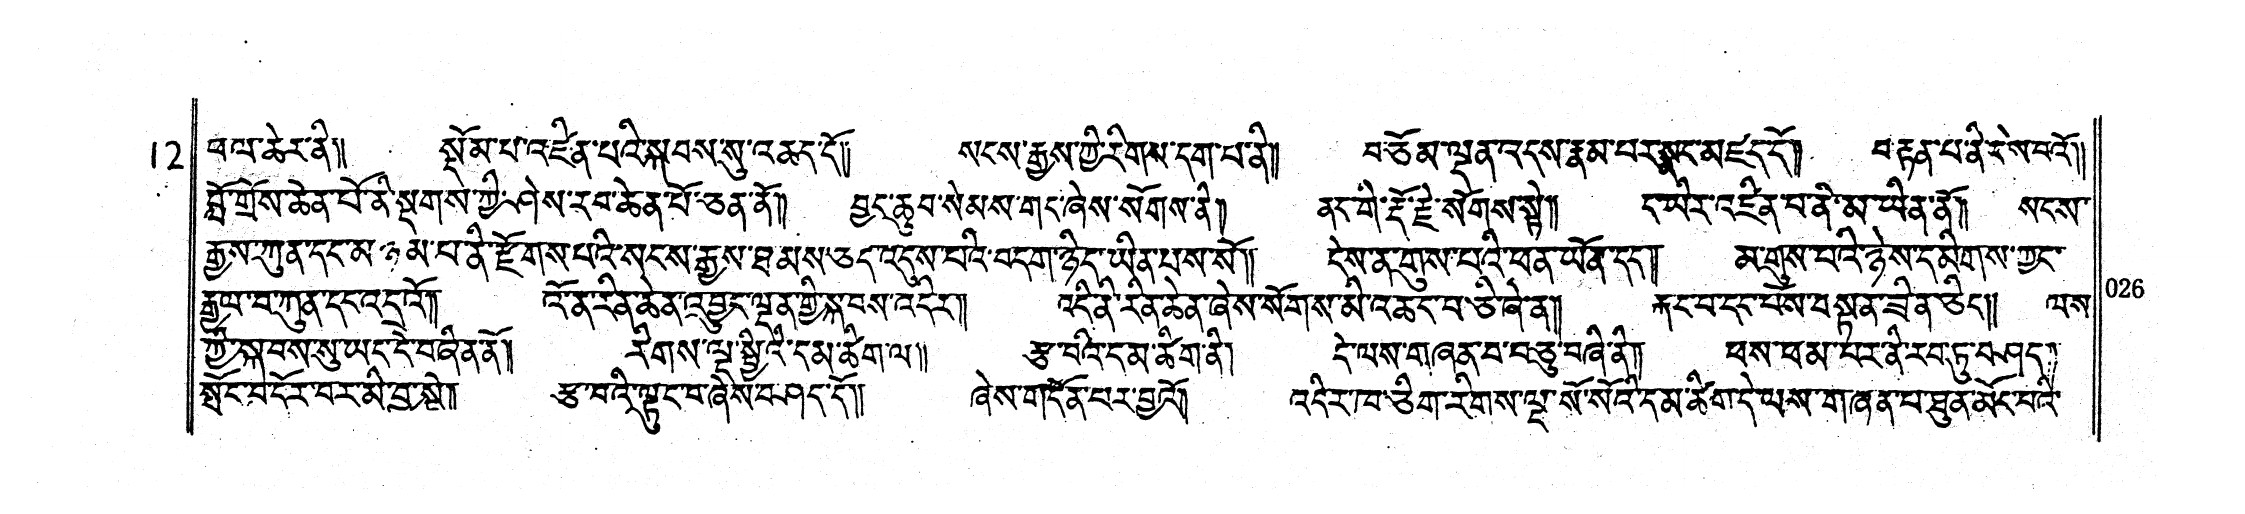 12 ཕལ་ཆེར་ནི།། སྡོམ་པ་འཛིན་པའི་སྐབས་སུ་འཆད་དོ།། སངས་རྒྱས་ཀྱི་རིགས་དག་པ་ནི།། བཅོམ་ལྡན་འདས་རྣམ་པར་སྣང་མཛད་དོ།། བརྟན་པ་ནི་ངེས་པའོ།།
བློ་གྲོས་ཆེན་པོ་ནི་སྔགས་ཀྱི་ཤེས་རབ་ཆེན་པོ་ཅན་ནོ།། བྱང་ཆུབ་སེམས་གང་ཞེས་སོགས་ནི། ནང་གི་རྡོ་རྗེ་སེགས་སྟེ།། ད་ཡིར་འཛིན་པ་ནི་མ་ཡིན་ནོ།། སངས་
རྒྱས་ཀུན་དང་མཉམ་པ་ནི་རྫོགས་པའི་སངས་རྒྱས་ཐམས་ཅད་འདུས་པའི་བདག་ཉིད་ཡིན་པས་སོ།། ངེས་ན་གུས་པའི་ཕན་ཡོན་དང༌།། མ་གུས་པའི་ཉེས་དམིགས་ཀྱང་
རྒྱལ་བ་ཀུན་དང་འདྲའོ།། འོ་ན་རིན་ཆེན་འབྱུང་ལྡན་གྱི་སྐབས་འདིར།། འདི་ནི་རིན་ཆེན་ཞེས་སོགས་མི་འཆང་བ་ཅི་ཞེ་ན།། རྐང་བ་དང་པོས་བསྟན་ཟིན་ཅིང༌།། ལས 026
ཀྱི་སྐབས་སུ་ཡང་དེ་བཞིན་ནོ།། རིགས་ལྔ་སྤྱི་འི་དམ་ཚིག་ལ།། རྩ་བའི་དམ་ཚིག་ནི། དེ་ལས་གཞན་བ་བཅུ་བཞི་ནི།། ཕས་ཕམ་པར་ནི་རབ་ཏུ་བཤད།
སྤོང་བ་དོར་བར་མི་བྱ་སྟེ།། རྩ་བའི་ལྟུང་བ་ཞེས་བཤད་དོ།། ཞེས་གདོན་པར་བྱའོ།། འདིར་ཁ་ཅིག་རིགས་ལྔ་སོ་སོའི་དམ་ཚིག་དེ་ལས་གཞན་པ་ཐུན་མོང་བའི་